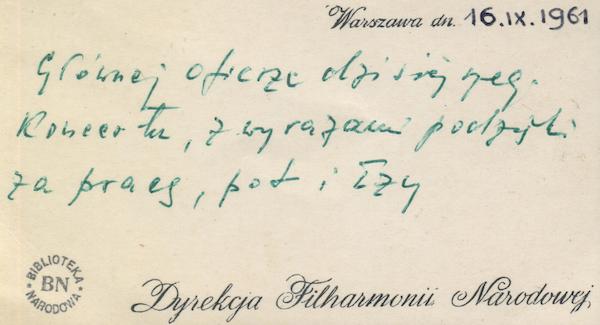 Warszawa dn. 16.IX.1961
Głównej ofierze dzisiejszeg.
Koncertu, z wyrazami podzięki
za pracę, pot i łzy
BIBLIOTEKA
BN
NARODOWA
Dyrekcja Filharmonii Narodowej